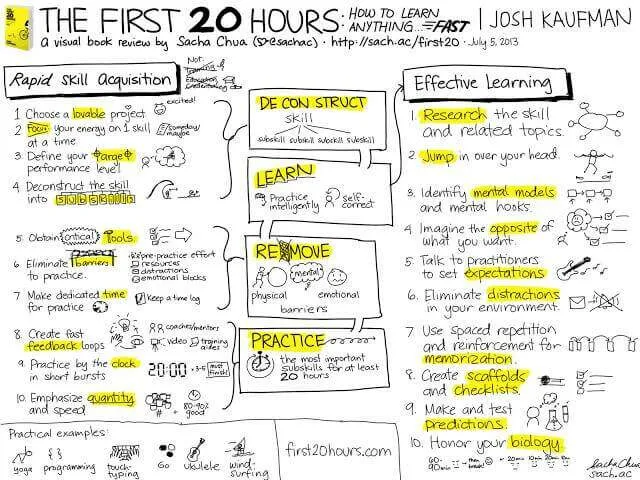 THE FIRST 20 HOURS: HOW TO LEARN ANYTHING... FAST | JOSH KAUFMAN
a visual book review by Sacha Chua (@sachac) · http://sach.ac/first20 · July 5, 2013
Rapid Skill Acquisition
Not:
Training
Education
Credentialing
1 Choose a lovable project.
excited!
2 Focus your energy on 1 skill
at a time
someday/
maybe
3 Define your target
performance level
4 Deconstruct the skill
into subskills
5. Obtain critical Tools.
6. Eliminate barriers
to practice.
pre-practice effort
resources
distractions
emotional blocks
7. Make dedicated time
for practice
Keep a time log
8. Create fast
feedback loops
coaches/mentors
video
training
aides
9. Practice by the clock
in short bursts
20:00
3-5
must
finish!
10. Emphasize quantity
and speed
80-90%
good
DECONSTRUCT
skill
subskill subskill subskill subskill
LEARN
Practice
intelligently
self-
correct
REMOVE
physical
mental
emotional
barriers
PRACTICE
the most important
subskills for at least
20 hours
Effective Learning
1. Research the skill
and related topics.
2. Jump in over your head.
3. Identify mental models
and mental hooks.
4. Imagine the opposite of
what you want.
5. Talk to practitioners
to set expectations
6. Eliminate distractions
in your environment.
7. Use spaced repetition
and reinforcement for
memorization.
8. Create scaffolds
and checklists.
9. Make and test
predictions.
10. Honor your biology.
60-
90min
then
break!
20min
10min
20min
10m
Practical examples:
yoga
{ }
programming
touch-
typing
Go
ukulele
wind-
surfing
first20hours.com
Sacha Chua
sach.ac